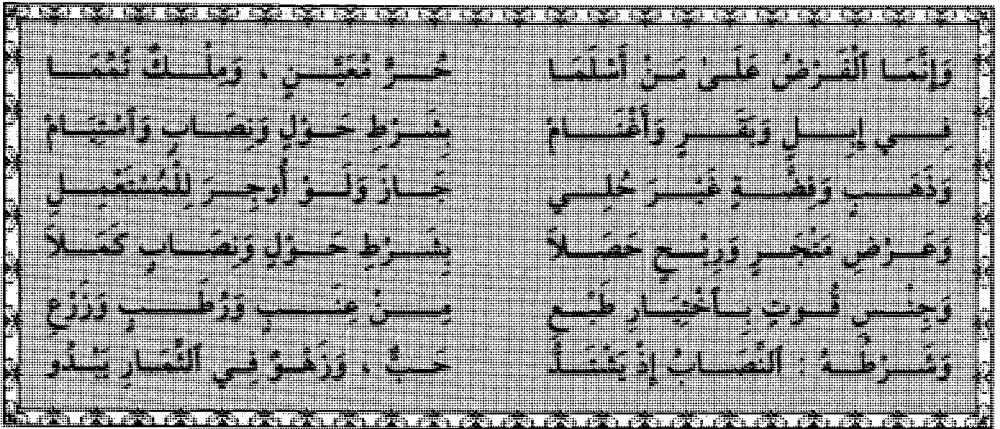 وَإِنَّمَا ٱلْفَرْضُ عَلَىٰ مَنْ أَسْلَمَا حُرٌّ مُعَيَّنٍ ، وَمِلْكٌ تُمِّمَا
فِي إِبِلٍ وَبَقَرٍ وَأَغْنَامْ بِشَرْطِ حَوْلٍ وَنِصَابٍ وَٱسْتِيَامْ
وَذَهَبٍ وَفِضَّةٍ غَيْرَ حُلِي جَازَ وَلَوْ أُوجِرَ لِلْمُسْتَعْمِلِ
وَعَرْضِ مَتْجَرٍ وَرِبْحٍ حَصَلاَ بِشَرْطِ حَوْلٍ وَنِصَابٍ كَمَلاَ
وَجِنْسِ قُوتٍ بِٱخْتِيَارِ طَبْعِ مِنْ عِنَبٍ وَرُطَبٍ وَزَرْعِ
وَشَرْطُهُ : ٱلنِّصَابُ إِذْ يَشْتَدُّ حَبٌّ ، وَزَهْوٌ فِي ٱلثِّمَارِ يَبْدُو